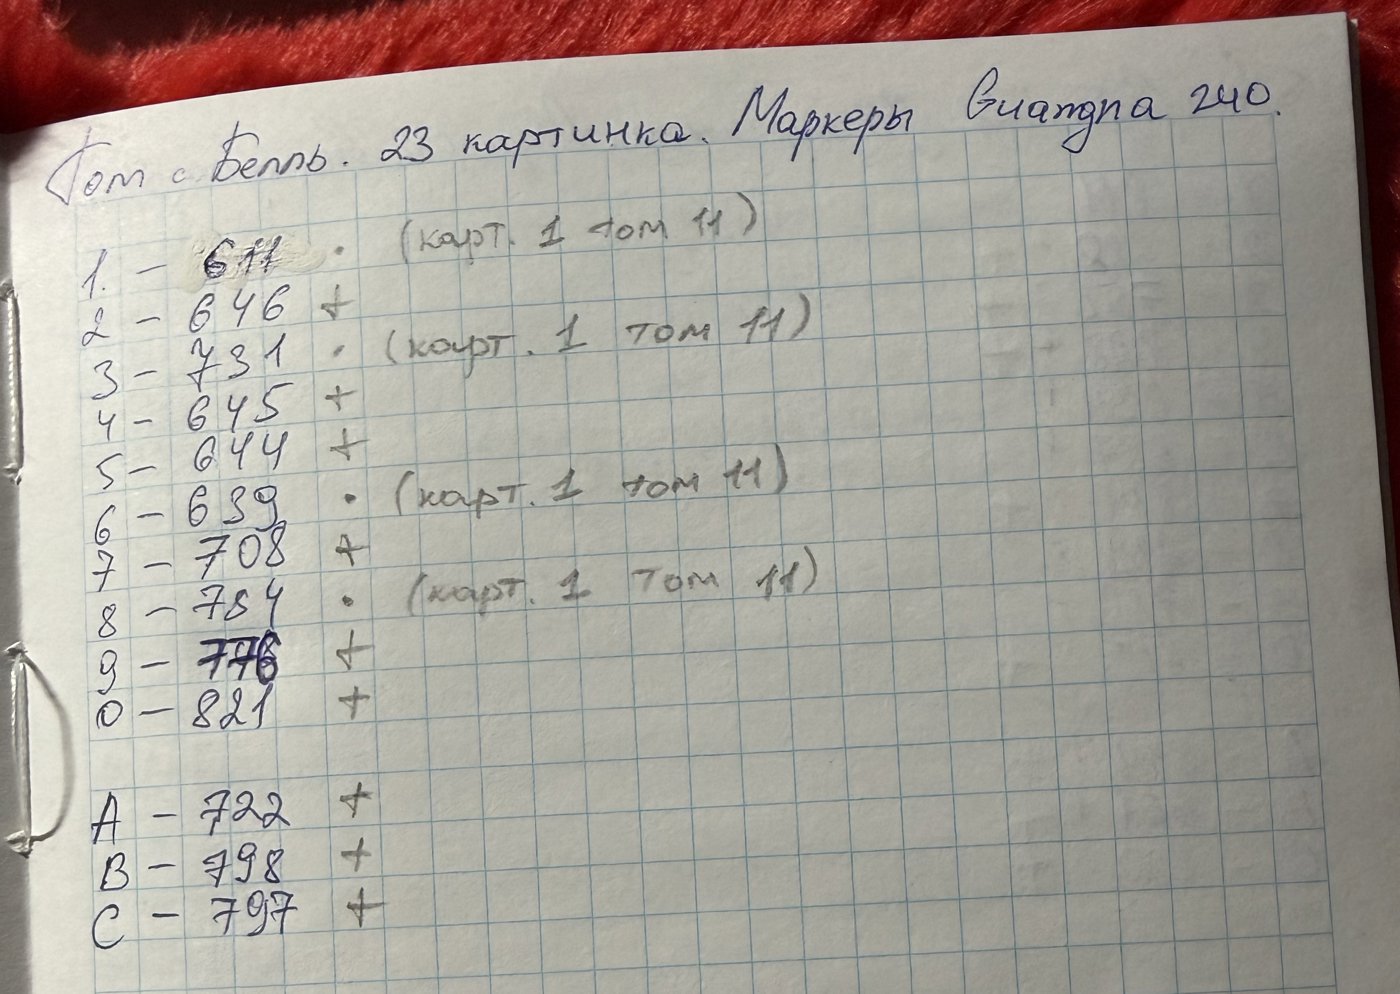 Том с Белль. 23 картинка. Маркеры Guangna 240.
1. - 611 . (карт. 1 том 11)
2 - 646 +
3 - 731 . (карт. 1 том 11)
4 - 645 +
5 - 644 +
6 - 639 . (карт. 1 том 11)
7 - 708 +
8 - 784 . (карт. 1 том 11)
9 - 776 +
0 - 821 +
A - 722 +
B - 798 +
C - 797 +